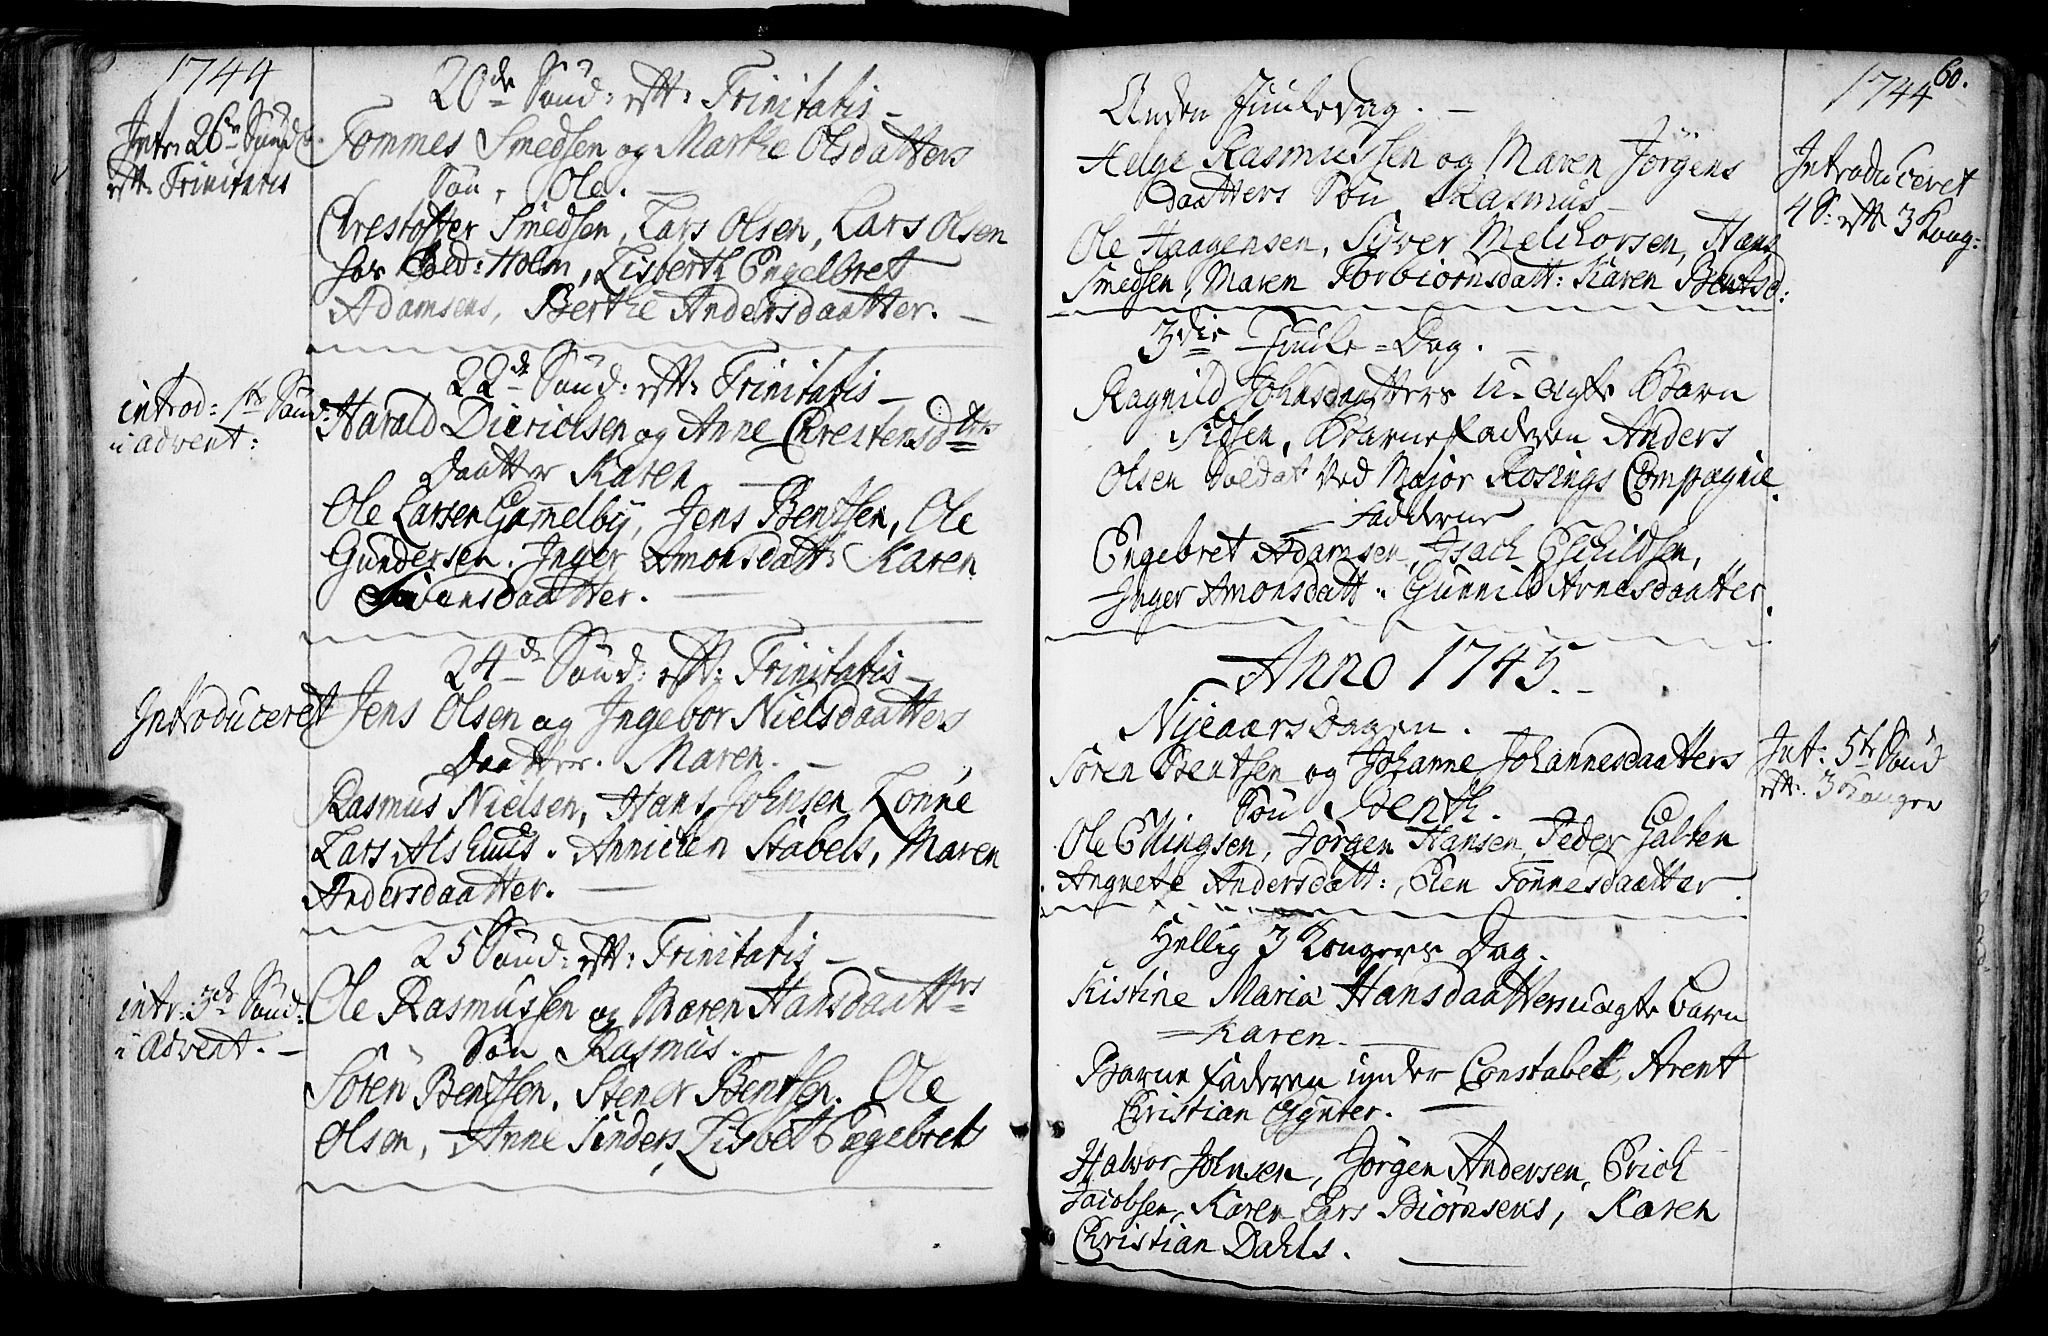 1744
Intr: 26de Sund:
eft: Trinitatis
20de Sønd: eft: Trinitatis
Tommes Smedsen og Marthe Olsdatters
Søn, Ole.
Chrestoffer Smedsen, Lars Olsen, Lars Olsen
hos Holm, Lisbeth Engelbret
Adamsens, Berthe Andersdaatter.
introd: 1te Sønd:
i advent:
22de Sønd: eft: Trinitatis
Harald Dierichsen og Anne Chrestensdtrs
Daatter Karen
Ole Larsen Gamelby, Jens Bentsen, Ole
Gundersen. Inger Amonsdatt: Karen
Swensdaatter.
24de Sønd: eft: Trinitatis
Introduceret
Jens Olsen og Ingebor Nielsdaatters
Daatter. Maren.
Rasmus Nielsen, Hans Johnsen Lønne
Lars Alshuus. Annichen Stabels, Maren
Andersdaatter.
25 Sønd: eft: Trinitatis
intr: 3de Sønd:
i Advent.
Ole Rasmussen og Maren Hansdaatters
Søn Rasmus.
Søren Bentsen, Stener Bentsen. Ole
Olsen, Anne Sinders, Lisbet Engebrets
1744 60.
Anden Juuledag.
Helge Rasmussen og Maren Jörgens
daatters Søn Rasmus
Introduceret
4 S: eft 3 Kong:
Ole Haagensen, Siver Melchorsen, Hans
Smedsen, Maren Torbiørnsdatt: Karen Bentsd:
3die Juule-Dag.
Ragnild Johnsdaatters u-ægte Barn
Sidsen, Barnefaderen Anders
Olsen Soldat ved Major Rosings Compagnie.
Fadderne
Engebret Adamsen, Isach Eschildsen,
Inger Amonsdatt: Gunnild Arnesdaatter.
Anno 1745.
Nijeaarsdagen.
Søren Bentsen og Johanne Johannesdaatters
Søn Benth.
Int: 5te Sønd
eft: 3 Konger
Ole Ellingsen, Jørgen Hansen, Peder Galten
Angnete Andersdatt:, Elen Tønnesdaatter.
Hellig 3 Kongers Dag.
Kistine Maria Hansdaatters uægte barn
Karen.
Barne faderen under Constabel, Arent
Christian Gynter.
Halvor Johnsen, Jørgen Andersen, Erich
Jacobsen, Karen Lars Biørnsens, Karen
Christian Dahls.